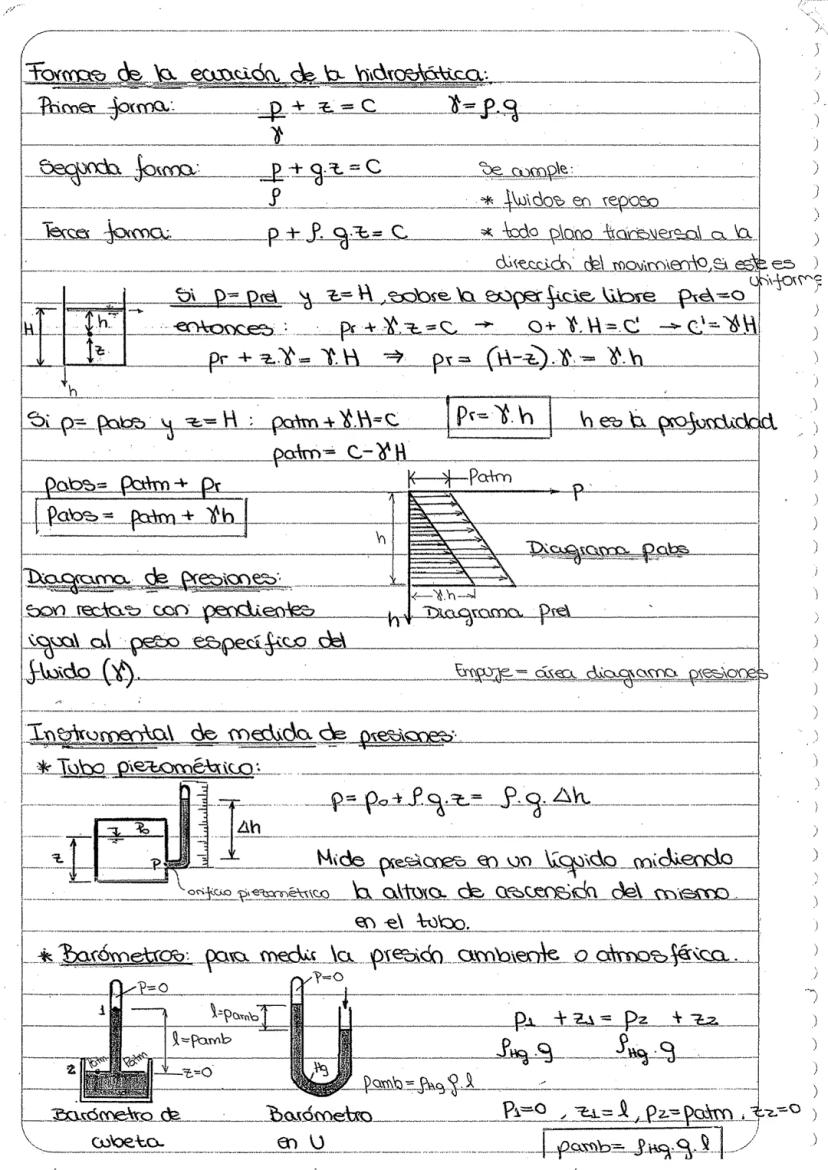 Formas de la ecuación de la hidrostática:
Primer forma: p/γ + z = C γ = ρ.g
Segunda forma: p/ρ + g.z = C Se cumple:
* fluidos en reposo
Tercer forma: p + ρ.g.z = C * todo plano transversal a la
dirección del movimiento, si este es
uniforme
Si p = prel y z = H, sobre la superficie libre prel = 0
entonces: pr + γ.z = C → 0 + γ.H = C' → C' = γH
pr + z.γ = γ.H ⇒ pr = (H-z).γ = γ.h
H h z h
Si p = pabs y z = H: patm + γ.H = C pr = γ.h h es la profundidad
patm = C - γH
pabs = patm + pr
pabs = patm + γh
Patm
P
h
Diagrama pabs
γ.h
h Diagrama Prel
Diagrama de presiones:
son rectas con pendientes
igual al peso específico del
fluido (γ).
Empuje = área diagrama presiones
Instrumental de medida de presiones:
* Tubo piezométrico:
p = po + ρ.g.z = ρ.g.Δh
Po Δh
z P
orificio piezométrico
Mide presiones en un líquido midiendo
la altura de ascensión del mismo
en el tubo.
* Barómetros: para medir la presión ambiente o atmosférica.
P=0 P=0
1 l=Pamb l=Pamb
2 Patm Patm z=0 Hg
Pamb = ρHg g.l
p1/ρHg.g + z1 = p2/ρHg.g + z2
Barómetro de
cubeta
Barómetro
en U
P1=0, z1=l, P2=Patm, z2=0
pamb = ρHg.g.l